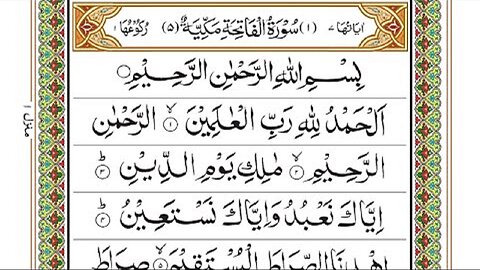 اٰیَاتُهَا ۷ (۱) سُوْرَةُ الْفَاتِحَةِ مَكِّیَّةٌ (۵) رُكُوْعُهَا ۱
بِسْمِ اللّٰهِ الرَّحْمٰنِ الرَّحِیْمِ
اَلْحَمْدُ لِلّٰهِ رَبِّ الْعٰلَمِیْنَ ۙ۱ الرَّحْمٰنِ
الرَّحِیْمِ ۙ۲ مٰلِكِ یَوْمِ الدِّیْنِ ؕ۳
اِیَّاكَ نَعْبُدُ وَ اِیَّاكَ نَسْتَعِیْنُ ؕ۴
اِهْدِنَا الصِّرَاطَ الْمُسْتَقِیْمَ ۙ۵ صِرَاطَ
منزل ۱